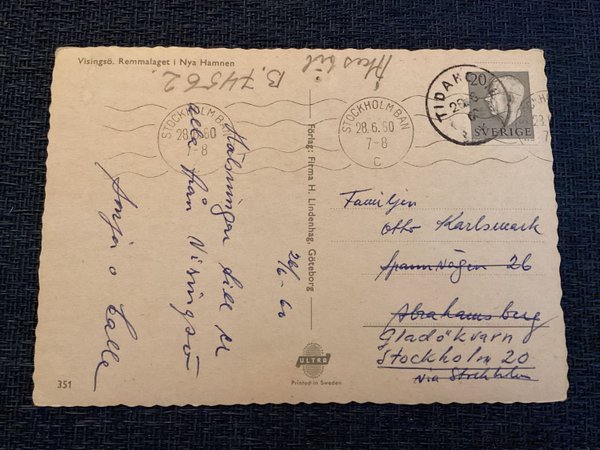 Visingsö. Remmalaget i Nya Hamnen
B. 74562.
Hälsningar till er
alla från Visingsö
Sonja o Kalle
26/6-60
Förlag: Firma H. Lindenhag, Göteborg
STOCKHOLM BAN
28.6.60
7-8
STOCKHOLM BAN
28.6.60
7-8
C
20
SVERIGE
Familjen
Otto Karlsmark
Spannvägen 26
Abrahamsberg
Gladökvarn
Stockholm 20
via Stockholm
ULTRA
Printed in Sweden
351